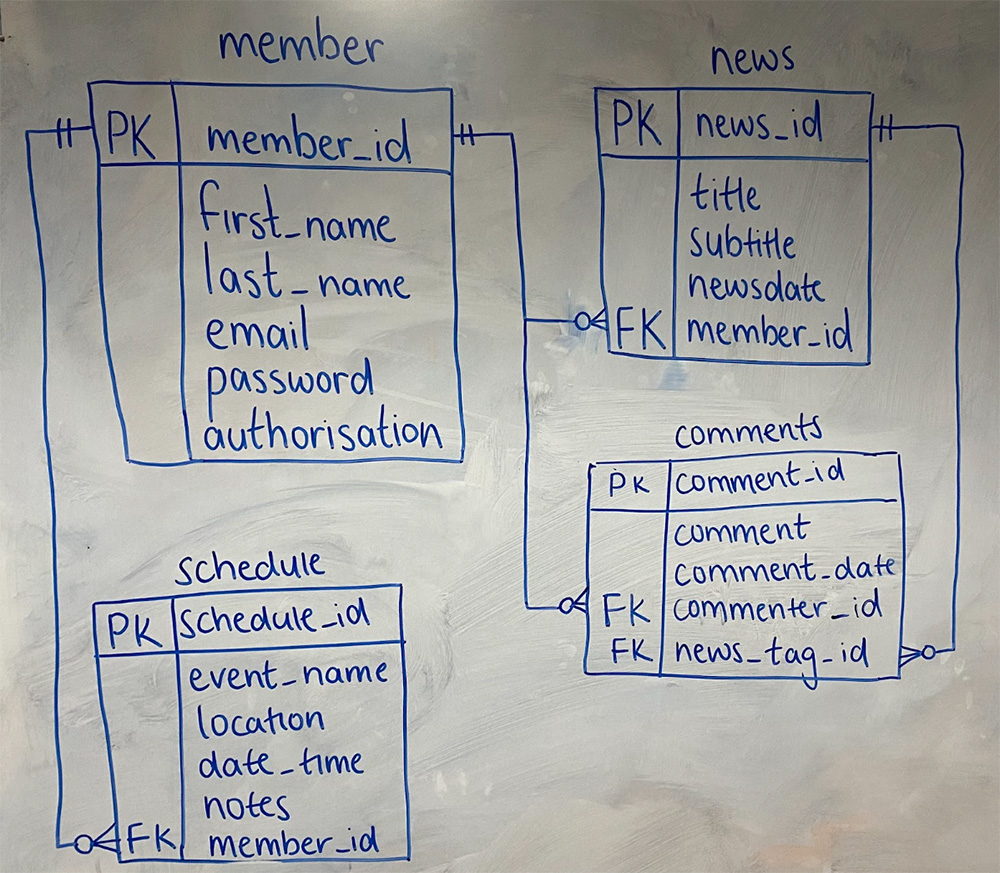 member
PK member_id
first_name
last_name
email
password
authorisation
news
PK news_id
title
subtitle
newsdate
FK member_id
comments
PK comment_id
comment
comment_date
FK commenter_id
FK news_tag_id
schedule
PK schedule_id
event_name
location
date_time
notes
FK member_id